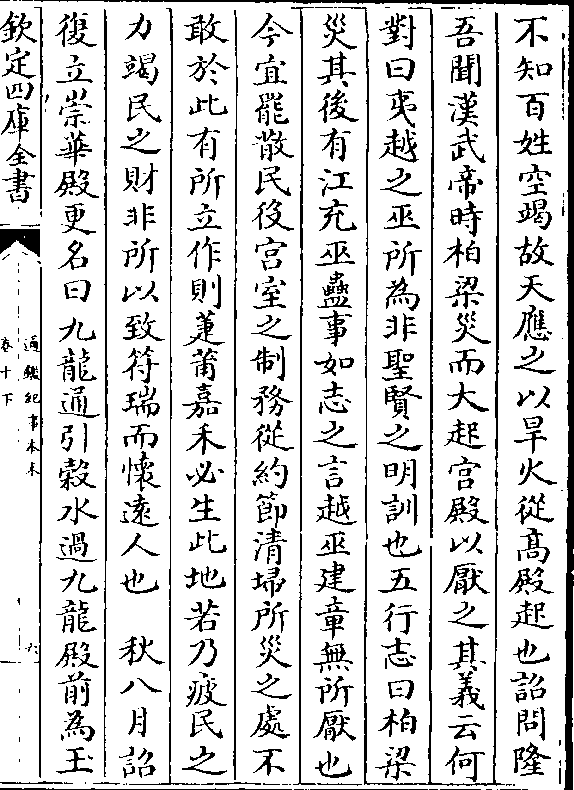 不知百姓空竭故天應之以旱火從髙殿起也詔問隆
吾聞漢武帝時柏梁災而大起宫殿以厭之其義云何
對曰夷越之巫所為非聖賢之明訓也五行志曰柏梁
災其後有江充巫蠱事如志之言越巫建章無所厭也
今宜罷散民役宫室之制務從約節清埽所災之處不
敢於此有所立作則萐莆嘉禾必生此地若乃疲民之
力竭民之財非所以致符瑞而懷遠人也　秋八月詔
復立崇華殿更名曰九龍通引榖水過九龍殿前為玉
欽定四庫全書
通鑑紀事本末
卷十下
六